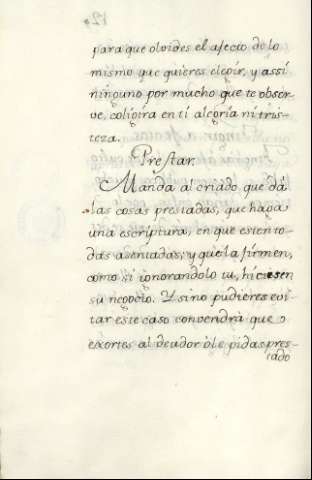 para que olvides el afecto de lo
mismo que quieres elegir, y assi
ninguno por mucho que te obser-
ve, coligira en ti alegria ni tris-
teza.
Prestar.
Manda al criado que dá
las cosas prestadas, que haga
una escriptura, en que esten to-
das asentadas, y que la firmen,
como si ignorandolo tu, hiciesen
su negocio. Y si no pudieres evi-
tar este caso convendrá que
exortes al deudor ò le pidas pres-
tado